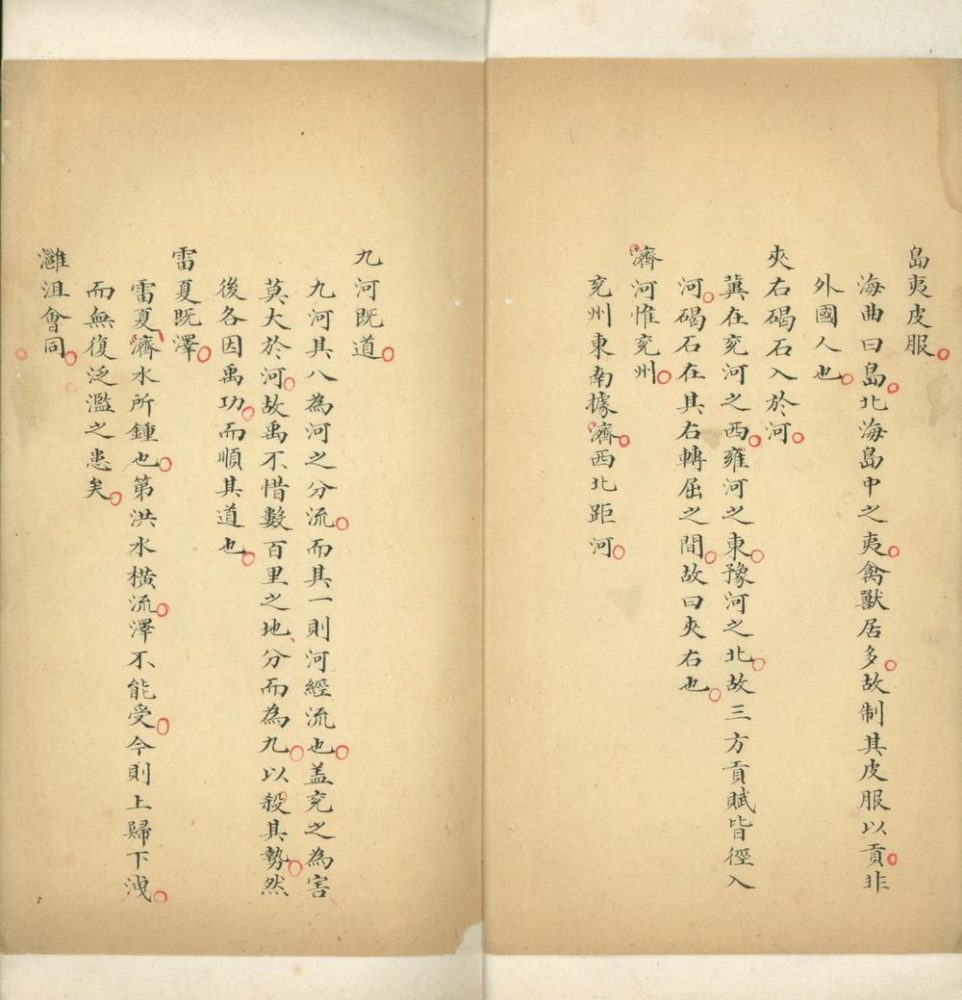 島夷皮服
海曲曰島北海島中之夷禽獸居多故制其皮服以貢非
外國人也
夾右碣石入於河
冀在兖河之西雍河之東豫河之北故三方貢賦皆徑入
河碣石在其右轉屈之間故曰夾右也
濟河惟兖州
兖州東南據濟西北距河
九河既道
九河其八為河之分流而其一則河經流也盖兖之為害
莫大於河故禹不惜數百里之地分而為九以殺其勢然
後各因禹功而順其道也
雷夏既澤
雷夏濟水所鍾也第洪水橫流澤不能受今則上歸下洩
而無復泛濫之患矣
灉沮會同